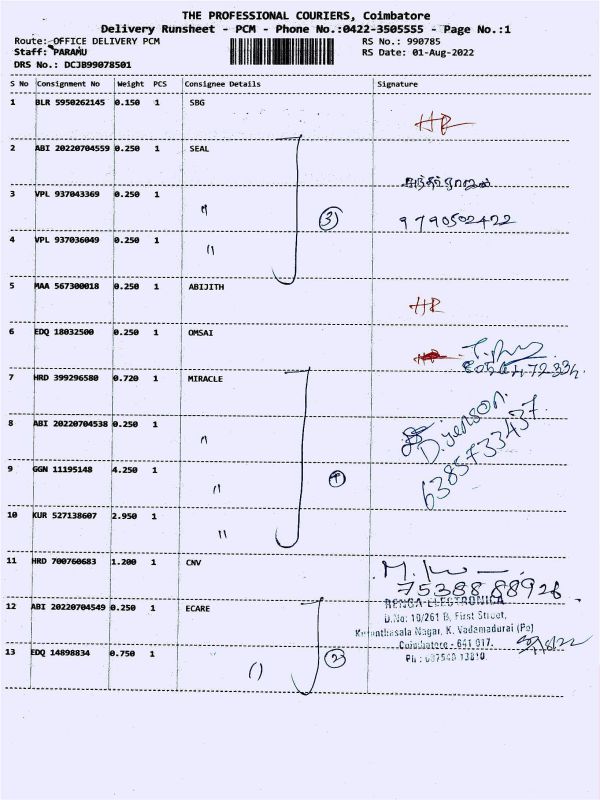 THE PROFESSIONAL COURIERS, Coimbatore
Delivery Runsheet - PCM - Phone No.:0422-3505555 - Page No.:1
Route: OFFICE DELIVERY PCM RS No.: 990785
Staff: PARAMU RS Date: 01-Aug-2022
DRS No.: DCJB99078501
S No Consignment No Weight PCS Consignee Details Signature
1 BLR 5950262145 0.150 1 SBG HR
2 ABI 20220704559 0.250 1 SEAL
3 VPL 937043369 0.250 1 〃 3 9790502422
4 VPL 937036049 0.250 1 〃
5 MAA 567300018 0.250 1 ABIJITH HR
6 EDQ 18032500 0.250 1 OMSAI
7 HRD 399296580 0.720 1 MIRACLE
8 ABI 20220704538 0.250 1 〃 D.jenson
6385733437
9 GGN 11195148 4.250 1 〃 4
10 KUR 527138607 2.950 1 〃
11 HRD 700760683 1.200 1 CNV
75388 88926
12 ABI 20220704549 0.250 1 ECARE RENGA ELECTRONICA
D.No: 10/261 B, First Street,
Nagar, K. Vadamadurai (Po)
Coimbatore - 641 017.
13 EDQ 14898834 0.750 1 〃 2